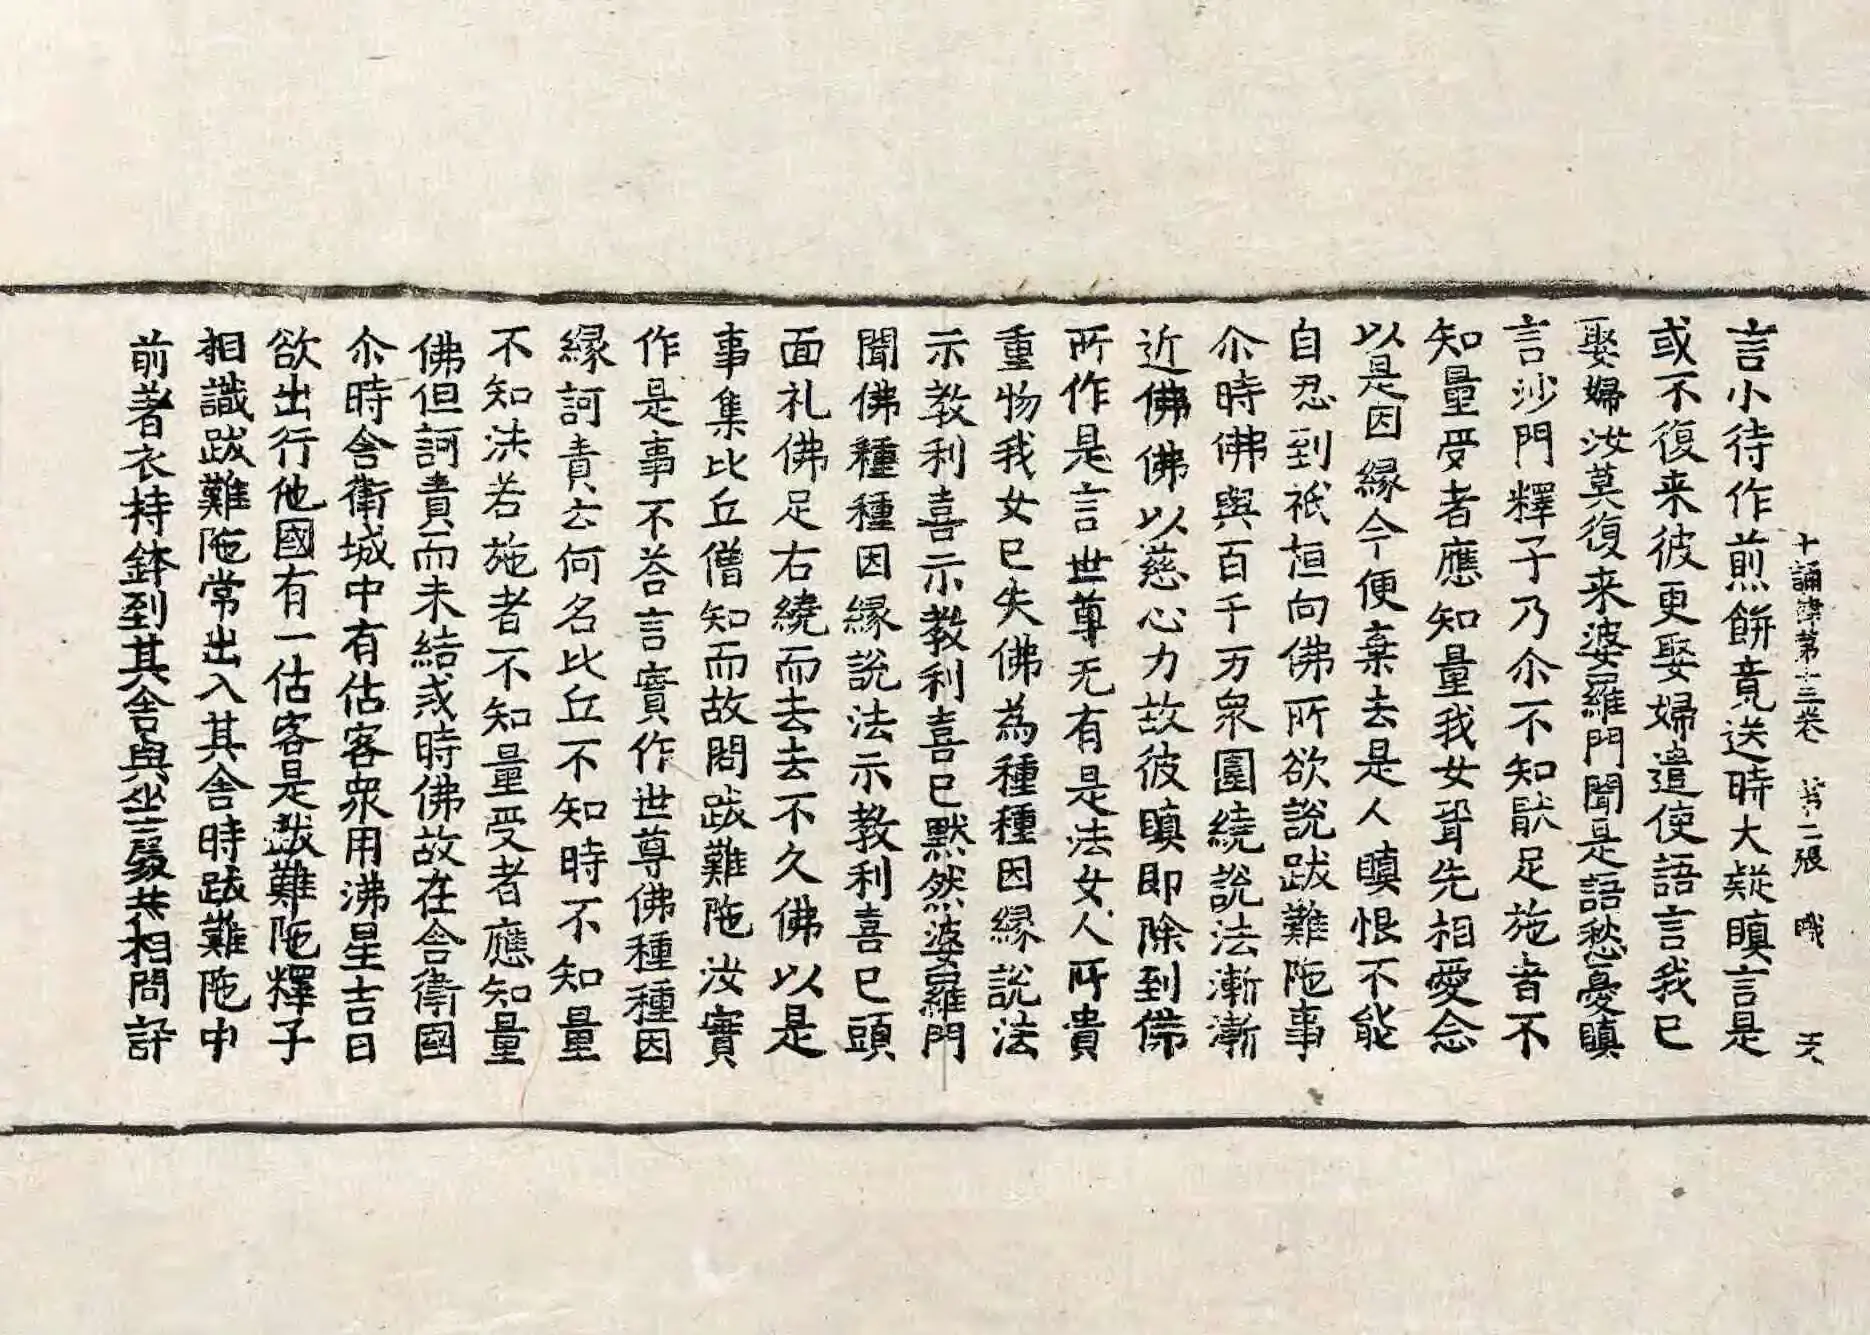 十誦律第十三卷 第二張 職
言小待作煎餅竟送時大疑瞋言是
或不復来彼更娶婦遣使語言我已
娶婦汝莫復来婆羅門聞是語愁憂瞋
言沙門釋子乃尒不知猒足施者不
知量受者應知量我女聟先相愛念
以是因縁今便棄去是人瞋恨不能
自忍到祇桓向佛所欲說跋難陁事
尒時佛與百千万衆圍繞說法漸漸
近佛佛以慈心力故彼瞋即除到佛
所作是言世尊无有是法女人所貴
重物我女已失佛為種種因縁說法
示教利喜示教利喜已默然婆羅門
聞佛種種因縁說法示教利喜已頭
面礼佛足右繞而去去不久佛以是
事集比丘僧知而故問跋難陁汝實
作是事不荅言實作世尊佛種種因
縁訶責云何名比丘不知時不知量
不知法若施者不知量受者應知量
佛但訶責而未結戒時佛故在舍衛國
尒時舍衛城中有估客衆用沸星吉日
欲出行他國有一估客是跋難陁釋子
相識跋難陁常出入其舍時跋難陁中
前著衣持鉢到其舍與坐處共相問訊